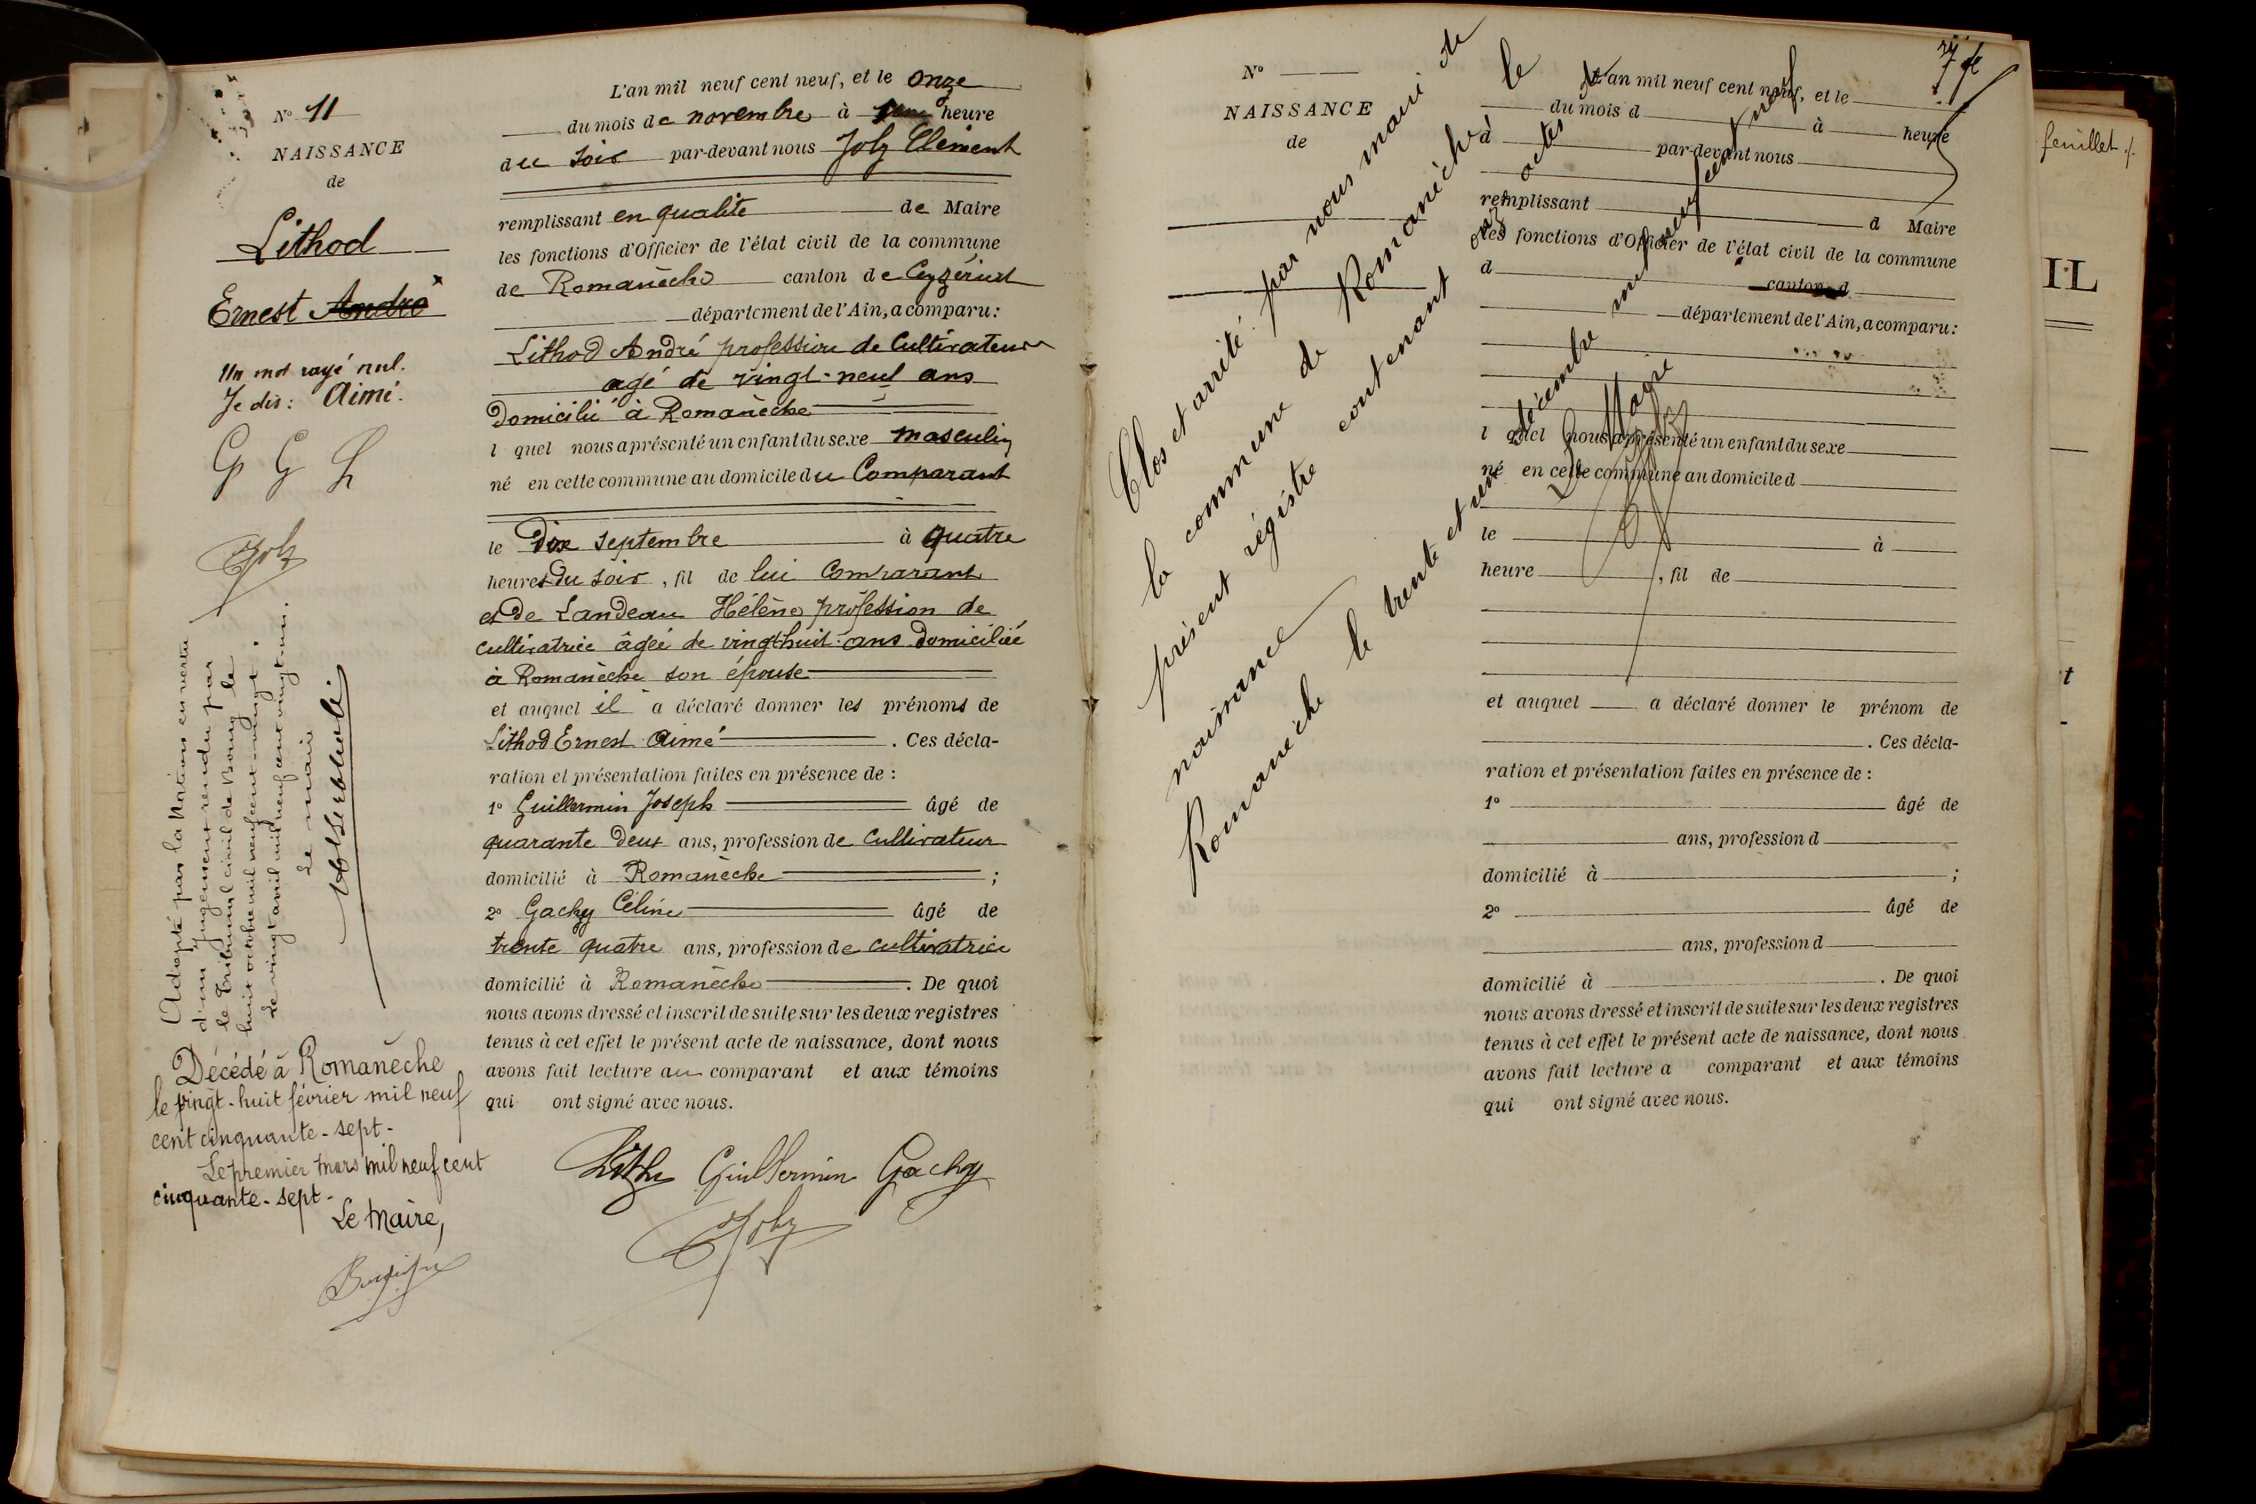 N° 11
NAISSANCE
de
Lithod
Ernest André
Un mot rayé nul.
Je dis : Aimé.
G G L
Joly
Adopté par la Nation en vertu
d'un jugement rendu par
le tribunal civil de Bourg le
huit octobre mil neuf cent vingt.
Le vingt avril mil neuf cent vingt un.
Le maire
Décédé à Romanèche
le vingt-huit février mil neuf
cent cinquante-sept-
Le premier mars mil neuf cent
cinquante-sept-
Le Maire,
L'an mil neuf cent neuf, et le onze
du mois de novembre à une heure
du soir par-devant nous Joly Clément
remplissant en qualité de Maire
les fonctions d'Officier de l'état civil de la commune
de Romanèche canton de Ceyzériat
département de l'Ain, a comparu :
Lithod André profession de Cultivateur
agé de vingt-neuf ans
domicilié à Romanèche
l quel nous a présenté un enfant du sexe masculin
né en cette commune au domicile du Comparant
le Dix septembre à quatre
heures du soir, fil de lui Comparant
et de Landeau Hélène profession de
cultivatrice âgée de vingt huit ans domiciliée
à Romanèche son épouse
et auquel il a déclaré donner les prénoms de
Lithod Ernest Aimé. Ces décla-
ration et présentation faites en présence de :
1° Guillermin Joseph âgé de
quarante deux ans, profession de cultivateur
domicilié à Romanèche ;
2° Gachy Céline âgé de
trente quatre ans, profession de cultivatrice
domicilié à Romanèche. De quoi
nous avons dressé et inscrit de suite sur les deux registres
tenus à cet effet le présent acte de naissance, dont nous
avons fait lecture au comparant et aux témoins
qui ont signé avec nous.
Litho Guillermin Gachy
Joly
N°
NAISSANCE
de
Clos et arrêté par nous maire de
la commune de Romanèche le
présent régistre contenant onze actes de
naissance
Romanèche le trente et un décembre mil neuf cent neuf
Le Maire
Joly
L'an mil neuf cent neuf, et le
du mois d à heure
d par-devant nous
remplissant d Maire
les fonctions d'Officier de l'état civil de la commune
d canton d
département de l'Ain, a comparu :
l quel nous a présenté un enfant du sexe
né en cette commune au domicile d
le à
heure, fil de
et auquel a déclaré donner le prénom de
. Ces décla-
ration et présentation faites en présence de :
1° âgé de
ans, profession d
domicilié à ;
2° âgé de
ans, profession d
domicilié à . De quoi
nous avons dressé et inscrit de suite sur les deux registres
tenus à cet effet le présent acte de naissance, dont nous
avons fait lecture a comparant et aux témoins
qui ont signé avec nous.
feuillet
IL